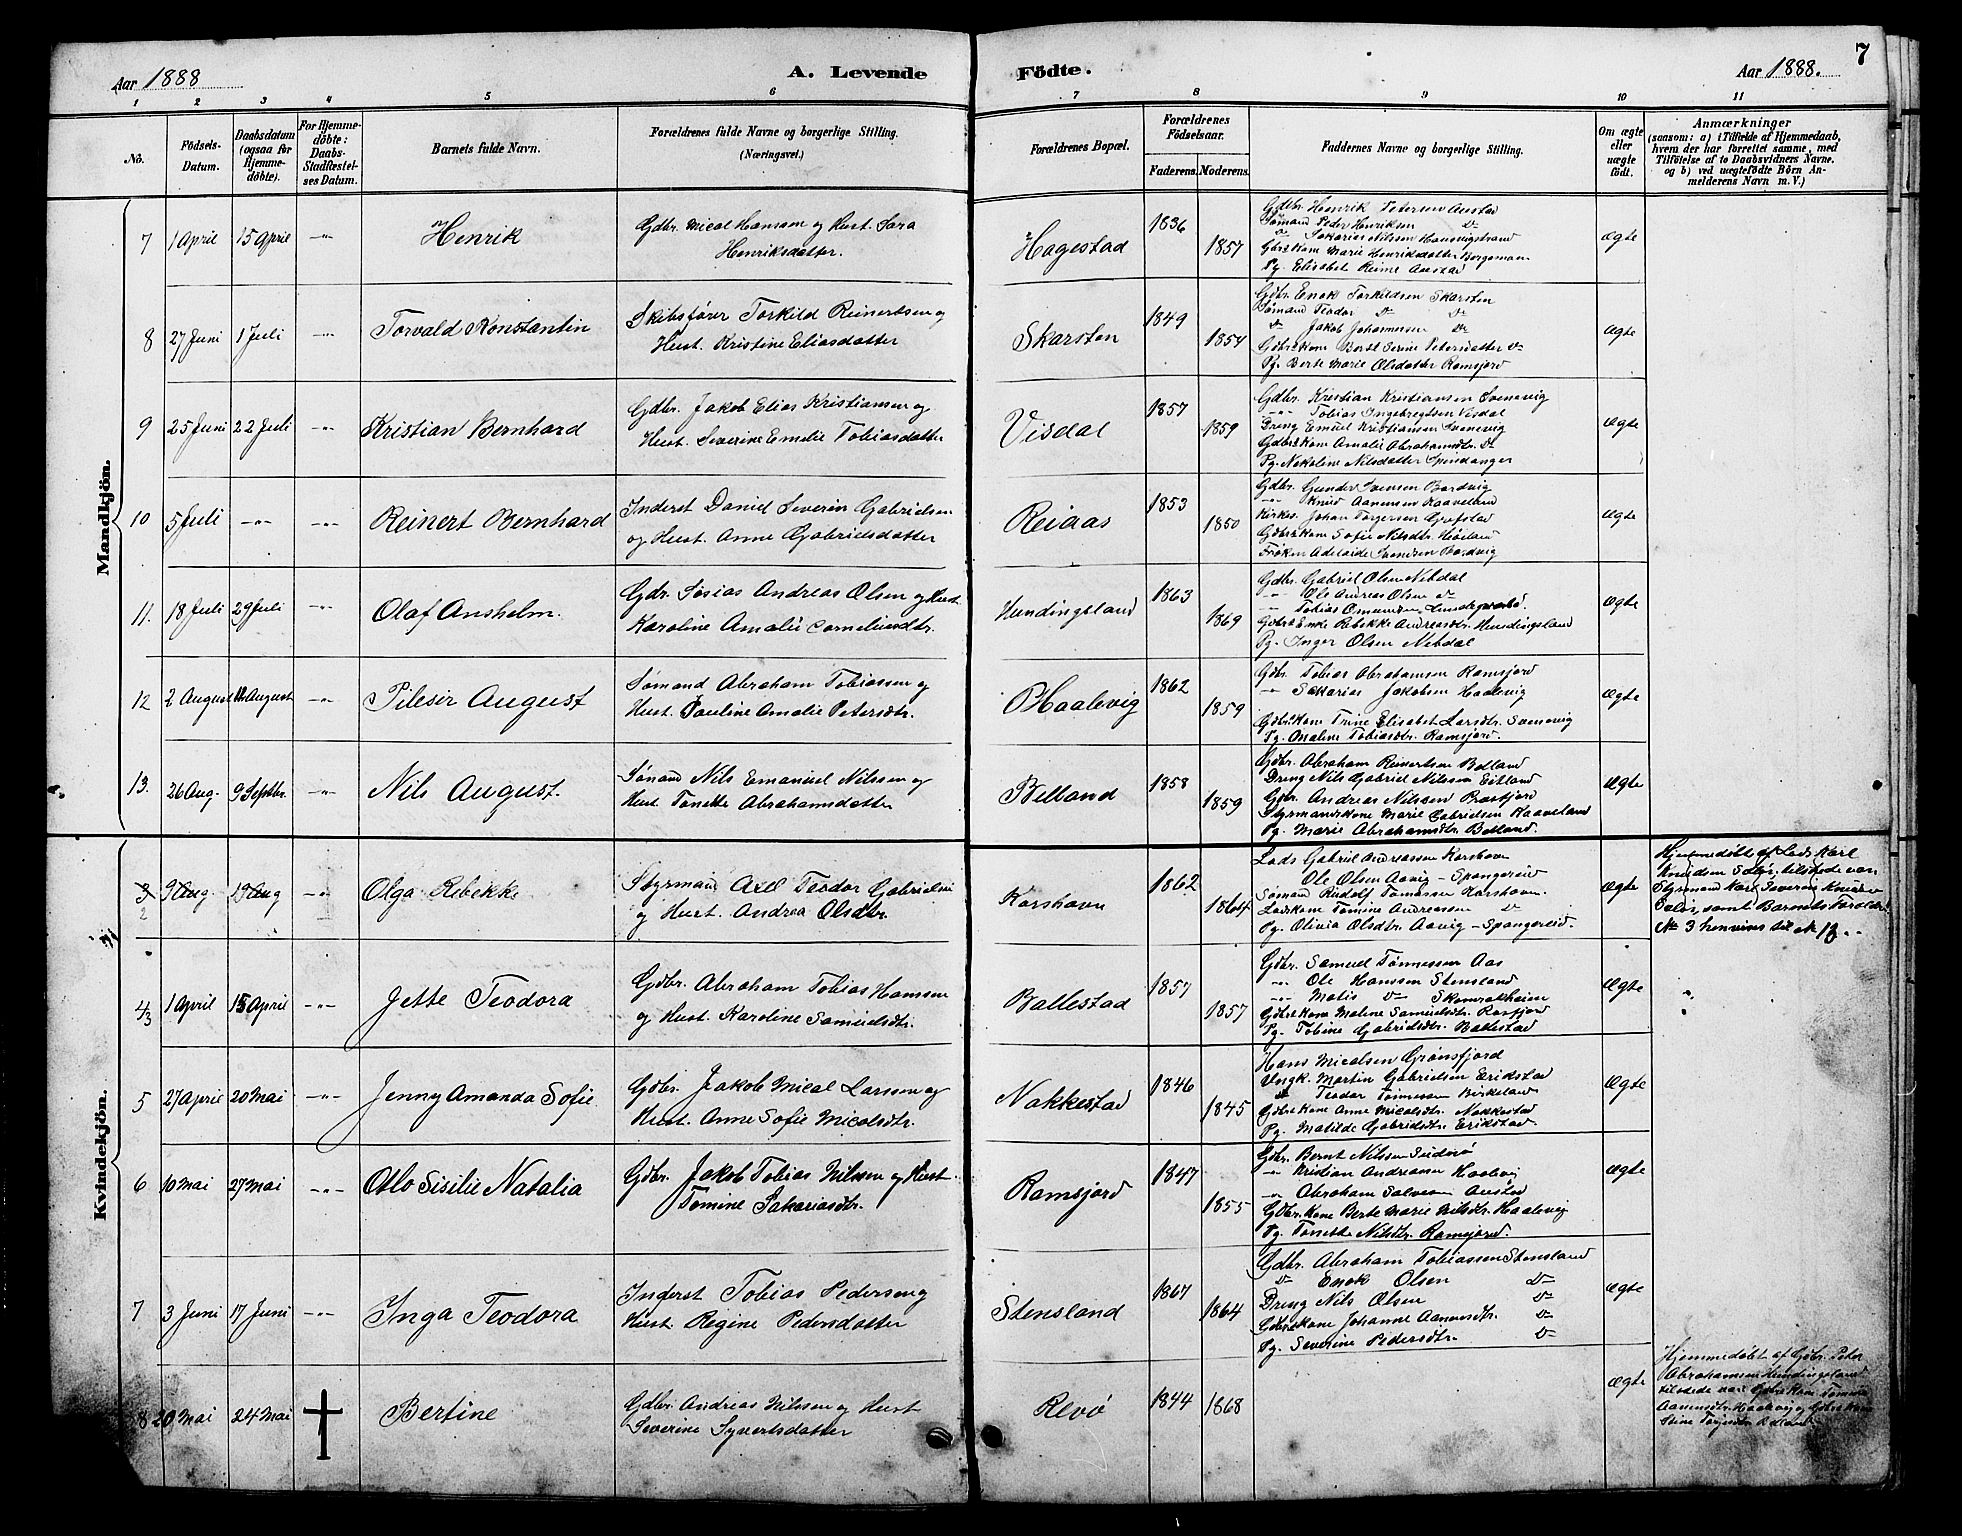 Aar 1888
A. Levende
Födte.
Aar 1888.
7
1 2 3 4 5 6 7 8 9 10 11
No.
Födsels-Datum.
Daabsdatum (ogsaa for Hjemme-döbte).
For Hjemme-döbte: Daabs-Stadfæstel-ses Datum.
Barnets fulde Navn.
Forældrenes fulde Navne og borgerlige Stilling.
(Næringsvei.)
Forældrenes Bopæl.
Forældrenes Födselsaar.
Faderens. Moderens.
Faddernes Navne og borgerlige Stilling.
Om ægte eller uægte födt.
Anmærkninger
(saasom: a) i Tilfælde af Hjemmedaab,
hvem der har forrettet samme, med
Tilföielse af to Daabsvidners Navne.
og b) ved uægtefödte Börn An-
melderens Navn m. V.)
Mandkjön.
7 1 April 15 April -"- Henrik
Gdbr. Mical Hansen og Hust. Sara
Henriksdatter.
Hagestad 1836 1857
Gdbr. Henrik Petersen Austad
Sømand Peder Henriksen Do
Do Sakarias Nilssen
Gbrskone Marie Henriksdatter
Pg. Elisabet Reime Austad
Ægte
8 27 Juni 1 Juli -"- Torvald Konstantin
Skibsfører Torkild Reinertsen og
Hust. Kristine Eliasdatter
Skarsten 1849 1854
Gdbr. Enok Torkildsen Skarsten
Sømand Teodor Do Do
Do Jakob Johannessen Do
Gdbrskone Serine Petersdatter Do
Pg. Berte Marie Olsdatter Ramsjord
Ægte
9 25 Juni 22 Juli -"- Kristian Bernhard
Gdbr. Jakob Elias Kristiansen og
Hust. Severine Emelie Tobiasdatter
Visdal 1857 1859
Gdbr. Kristian Kristiansen Svenevig
-"- Tobias Ingebregtsen Visdal
Dreng Emuel Kristiansen Svenevig
Gdbrskone Amalie Abrahamsdtr. Do
Pg. Nilsdatter Spindanger
Ægte
10 5 Juli -"- -"- Reinert Bernhard
Inderst Daniel Severin Gabrielsen
og Hust. Anne Gabrielsdatter
Reiaas 1853 1850
Gdbr. Gunder Svensen Bordvig
-"- Knud Aanensen Kaaveland
Kirkes. Johan Torgersen
Gdbrskone Sofie Nilsdtr. Høiland
Frøken Adelaide Svendsen Bordvig
Ægte
11. 18 Juli 29 Juli -"- Olaf Anshelm.
Gdr. Josias Andreas Olsen og Hust
Karoline Amalie Corneliusdtr.
Hundingsland 1863 1869
Gdbr. Gabriel Olsen Nebdal
-"- Ole Andreas Olsen Do
-"- Tobias
Gdbrs Enke Rebekke Andreasdtr. Hundingsland
Pg. Inger Olsen Nebdal
Ægte
12 2 August 12 August -"- Pileser August
Sømand Abraham Tobiassen og
Hust. Pauline Amalie Petersdtr.
Haalevig 1862 1859
Gdbr. Tobias Abrahamsen Ramsjord
-"- Sakarias Jakobsen Haalevig
Gdbrskone Trine Elisabet Larsdtr. Svenevig
Pg. Maline Tobiasdtr. Ramsjord.
Ægte
13. 26 Aug. 9 Septbr. -"- Nils August.
Sømand Nils Emanuel Nilssen og
Hust. Tonette Abrahamsdatter
Belland 1858 1859
Gdbr. Abraham Reinertsen Belland
Dreng Nils Gabriel Nilssen Eitland
Gdbr. Andreas Nilssen
Styrmandskone Marie Gabrielsen Kaaveland
Pg. Marie Abrahamsdtr. Belland.
Ægte
Kvindekjön.
3 2 9 Aug 19 Aug -"- Olga Rebekke
Styrmand Axel Teodor Gabrielsen
og Hust. Andrea Olsdtr.
Korshavn 1862 1864
Lods Gabriel Andreassen Korshavn
Ole Olsen Aavig - Spangereid
Sømand Rudolf Tønnessen Korshavn.
Lodskone Tomine Andreassen Do
Pg. Olivia Olsdtr. Aavig - Spangereid.
Ægte
Hjemmedøbt af Lods Karl
Knudsen Selør, tilstede var
Styrmand Severin Knudsen
Selør, samt Barnets Forældre
No 3 henvises til
4 3 1 April 15 April -"- Jette Teodora
Gdbr. Abraham Tobias Hansen
og Hust. Karoline Samuelsdtr.
Ballestad 1857 1857
Gdbr. Samuel Tønnessen Aas
-"- Ole Hanssen Stensland
-"- Matis Do
Gdbrskone Maline Samuelsdtr. Rosfjord
Pg. Tobine Gabrielsdtr. Ballestad
Ægte
5 27 April 20 Mai -"- Jenny Amanda Sofie.
Gdbr. Jakob Mical Larssen og
Hust. Anne Sofie Micalsdtr.
Nakkestad 1846 1845
Hans Micalsen Grønsfjord
Ungk. Martin Gabrielsen Erikstad
Do Teodor Tønnessen Birkeland
Gdbrskone Anne Micalsdtr. Nakkestad
Pg. Matilde Gabrielsdtr. Erikstad.
Ægte
6 10 Mai 27 Mai -"- Otlo Sisilie Natalia
Gdbr. Jakob Tobias Nilssen og Hust.
Tomine Sakariasdtr.
Ramsjord 1847 1855
Gdbr. Bernt Nilssen
-"- Kristian Andreasen Haalevig
-"- Abraham Salvesen Austad
Gdbr.kone Berte Marie Nilsdtr. Haalevig
Pg. Tonette Nilsdtr. Ramsjord.
Ægte
7 3 Juni 17 Juni -"- Inga Teodora
Inderst Tobias Pedersen og
Hust. Regine Pedersdatter
Stensland 1867 1864
Gdbr. Abraham Tobiassen Stensland
Do Enok Olsen Do
Dreng Nils Olsen Do
Gdbrskone Johanne Aanensdtr. Do
Pg. Severine Pedersdtr. Do
Ægte
8 20 Mai 24 Mai † Bertine
Gdbr. Andreas Nilssen og Hust
Severine Syvertsdatter
Revø 1844 1868
Ægte
Hjemmedøbt af Gdbr. Peter
Abrahamsen Hundingsland
tilstede var Gdbrskone Tomine
Aanensdtr. Haalevig og Gdbrskone
Stine